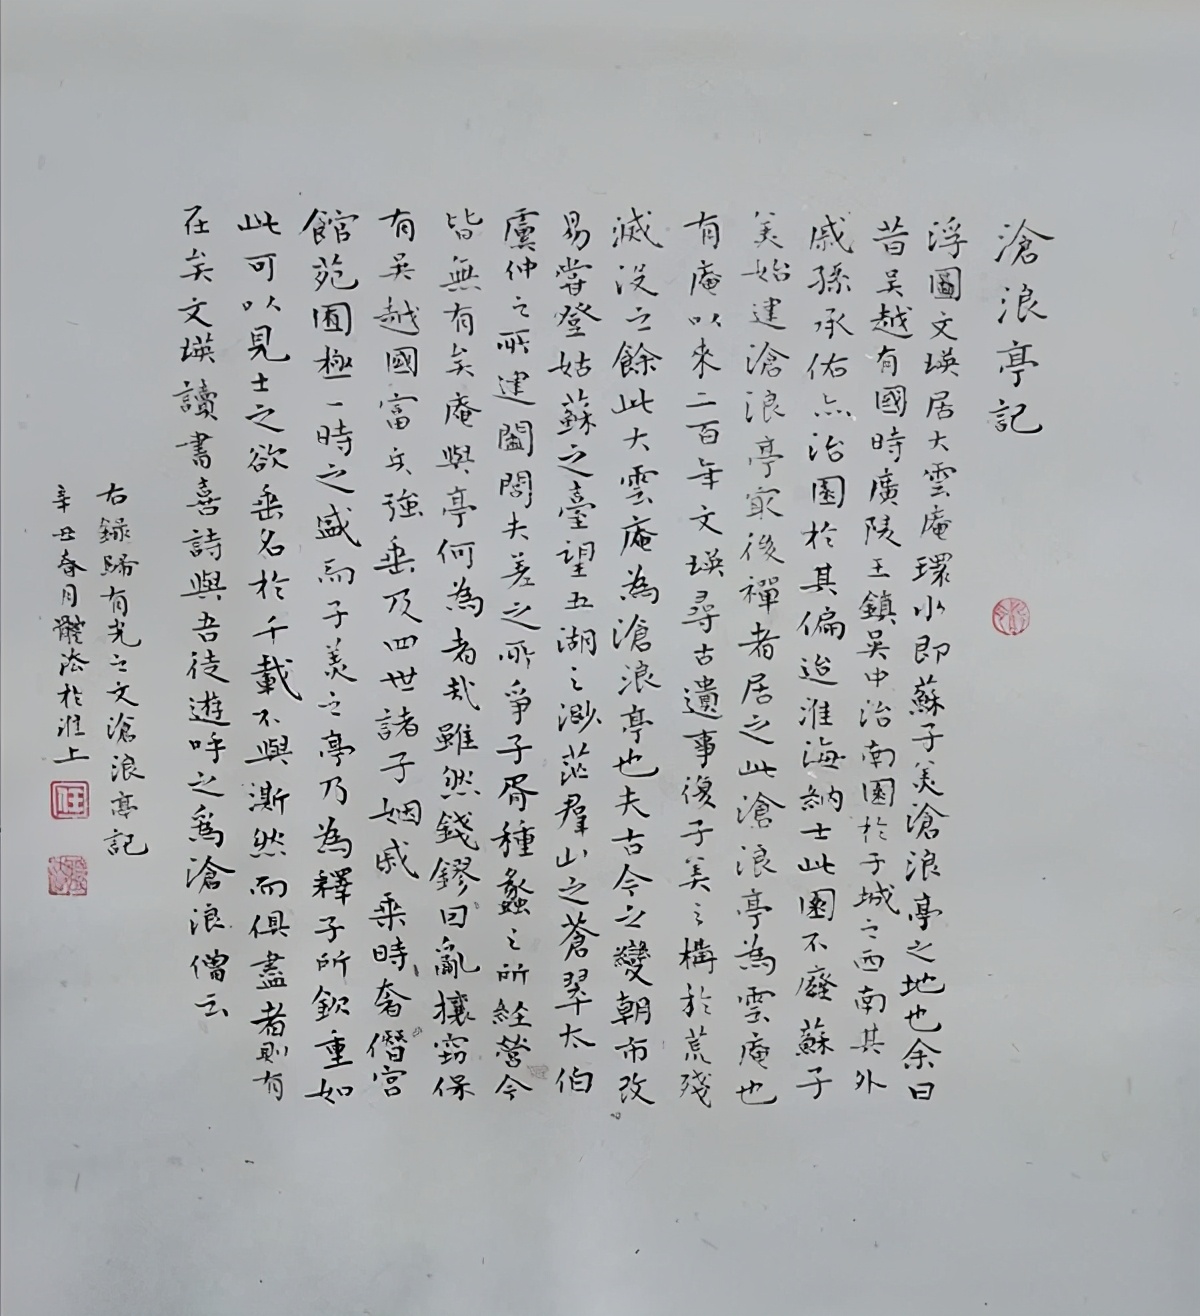 滄浪亭記
浮圖文瑛居大雲庵環水即蘇子美滄浪亭之地也余曰
昔吳越有國時廣陵王鎮吳中治南園於子城之西南其外
戚孫承佑亦治園於其偏迨淮海納士此園不廢蘇子
美始建滄浪亭最後禪者居之此滄浪亭為雲庵也
有庵以來二百年文瑛尋古遺事復子美之構於荒殘
滅没之餘此大雲庵為滄浪亭也夫古今之變朝市改
易嘗登姑蘇之臺望五湖之渺茫羣山之蒼翠太伯
虞仲之所建闔閭夫差之所爭子胥種蠡之所經營今
皆無有矣庵與亭何為者哉雖然錢鏐曰亂攘竊保
有吳越國富兵強垂及四世諸子姻戚乘時奢僭宮
館苑囿極一時之盛而子美之亭乃為釋子所欽重如
此可以見士之欲垂名於千載不與澌然而俱盡者則有
在矣文瑛讀書喜詩與吾徒遊呼之為滄浪僧云
右録歸有光之文滄浪亭記
辛丑春月 於淮上